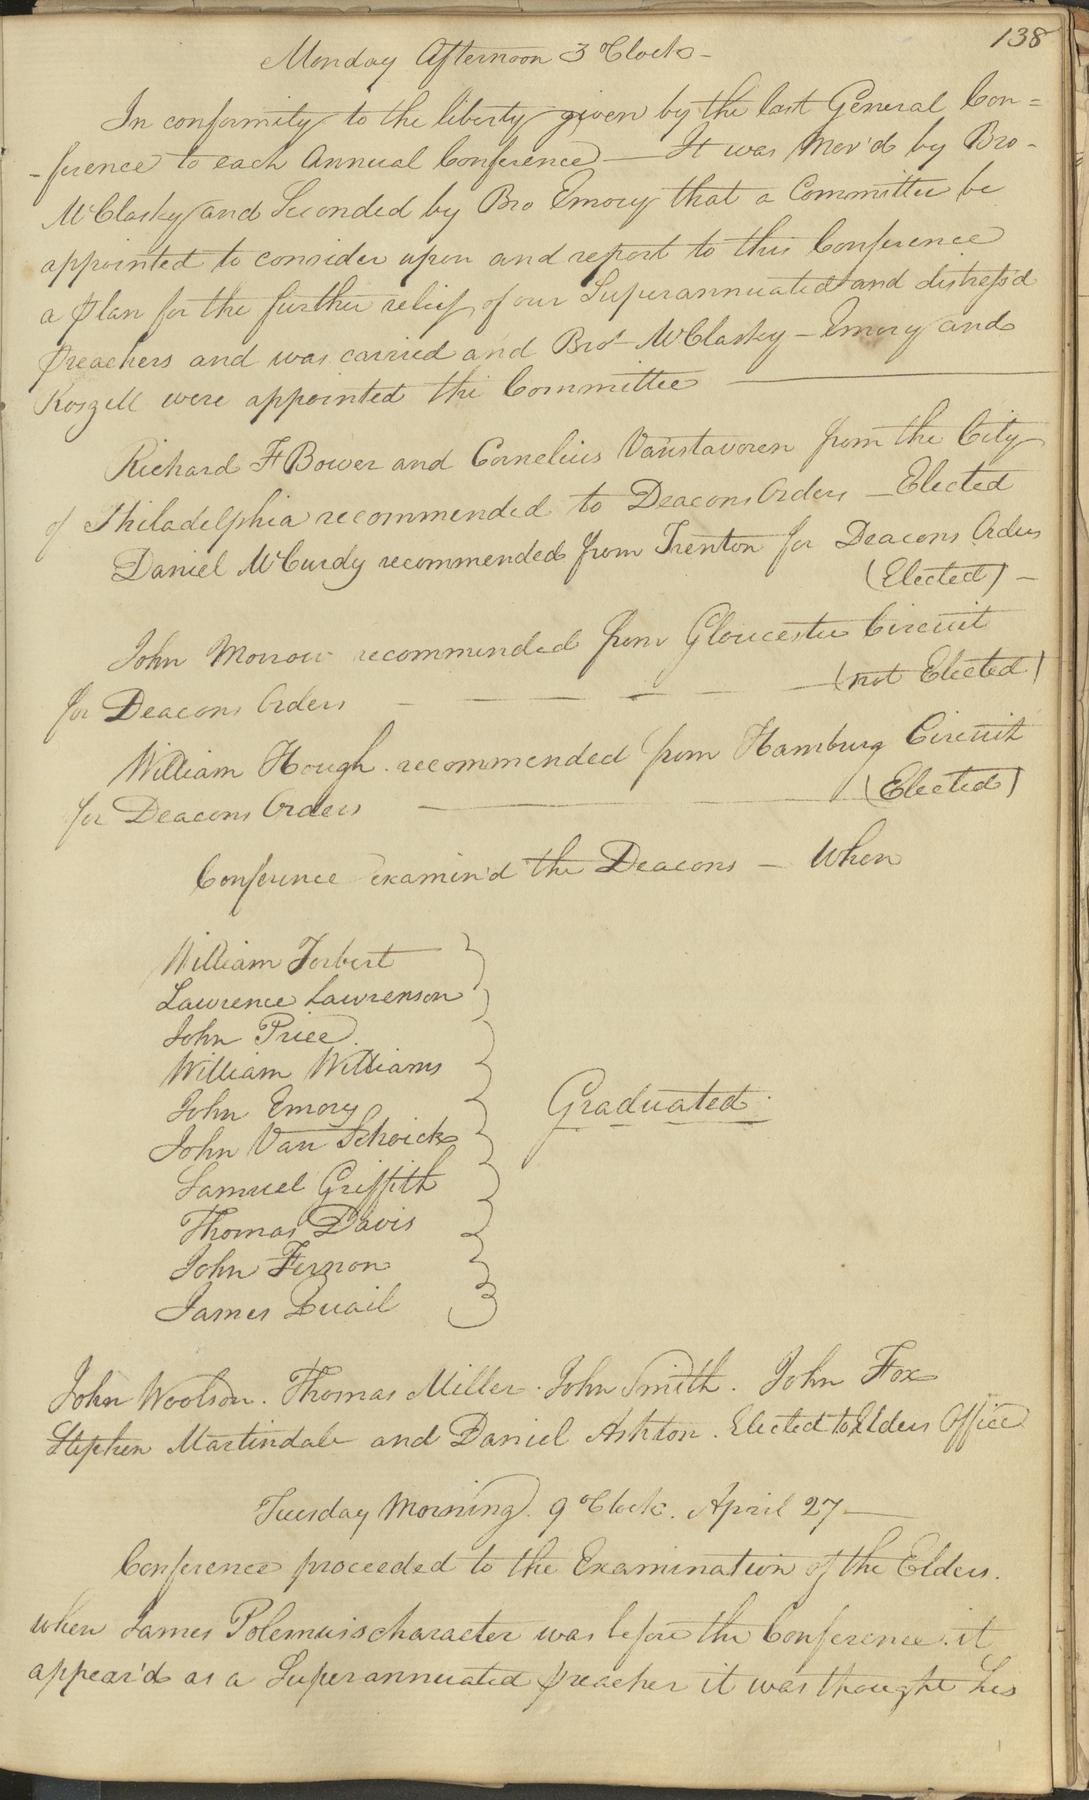 138
Monday Afternoon 3 oClock -
In conformity to the liberty given by the last General Con=
-ference to each Annual Conference — It was Mov'd by Bro-
McClasky and Seconded by Bro Emory that a Committee be
appointed to consider upon and report to this Conference
a plan for the further relief of our Superannuated and distress'd
preachers and was carried and Bros McClasky - Emory and
Roszell were appointed the Committee —
Richard F Bower and Cornelius Vanstavoren from the City
of Philadelphia recommended to Deacons Orders - Elected
Daniel McCurdy recommended from Trenton for Deacons Orders
(Elected) -
John Morrow recommended from Gloucester Circuit
for Deacons Orders - — — - — (not Elected)
William Hough. recommended from Hamburg Circuit
for Deacons Orders — (Elected)
Conference examin'd the Deacons - When
William Torbert
Lawrence Lawrenson
John Price.
William Williams
John Emory
Graduated.
John Van Schoick
Samuel Griffith
Thomas Davis
John Fernon
James Quail
John Woolson. Thomas Miller. John Smith. John Fox
Stephen Martindale and Daniel Ashton. Elected to Elders Office
Tuesday Morning. 9 oClock. April 27 —
Conference proceeded to the Examination of the Elders.
when James Polemuis character was before the Conference. it
appear'd as a Superannuated preacher it was thought his